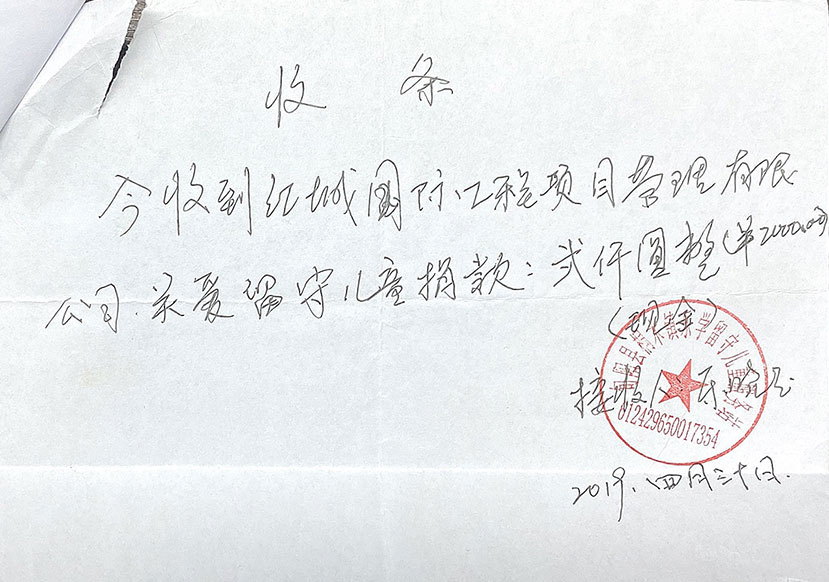 收条
今收到红城国际工程项目管理有限
公司.关爱留守儿童捐款:贰仟圆整(￥2000.00)
(现金)
接收人:
学留守儿童
612429650017354
2019.四月三十日.